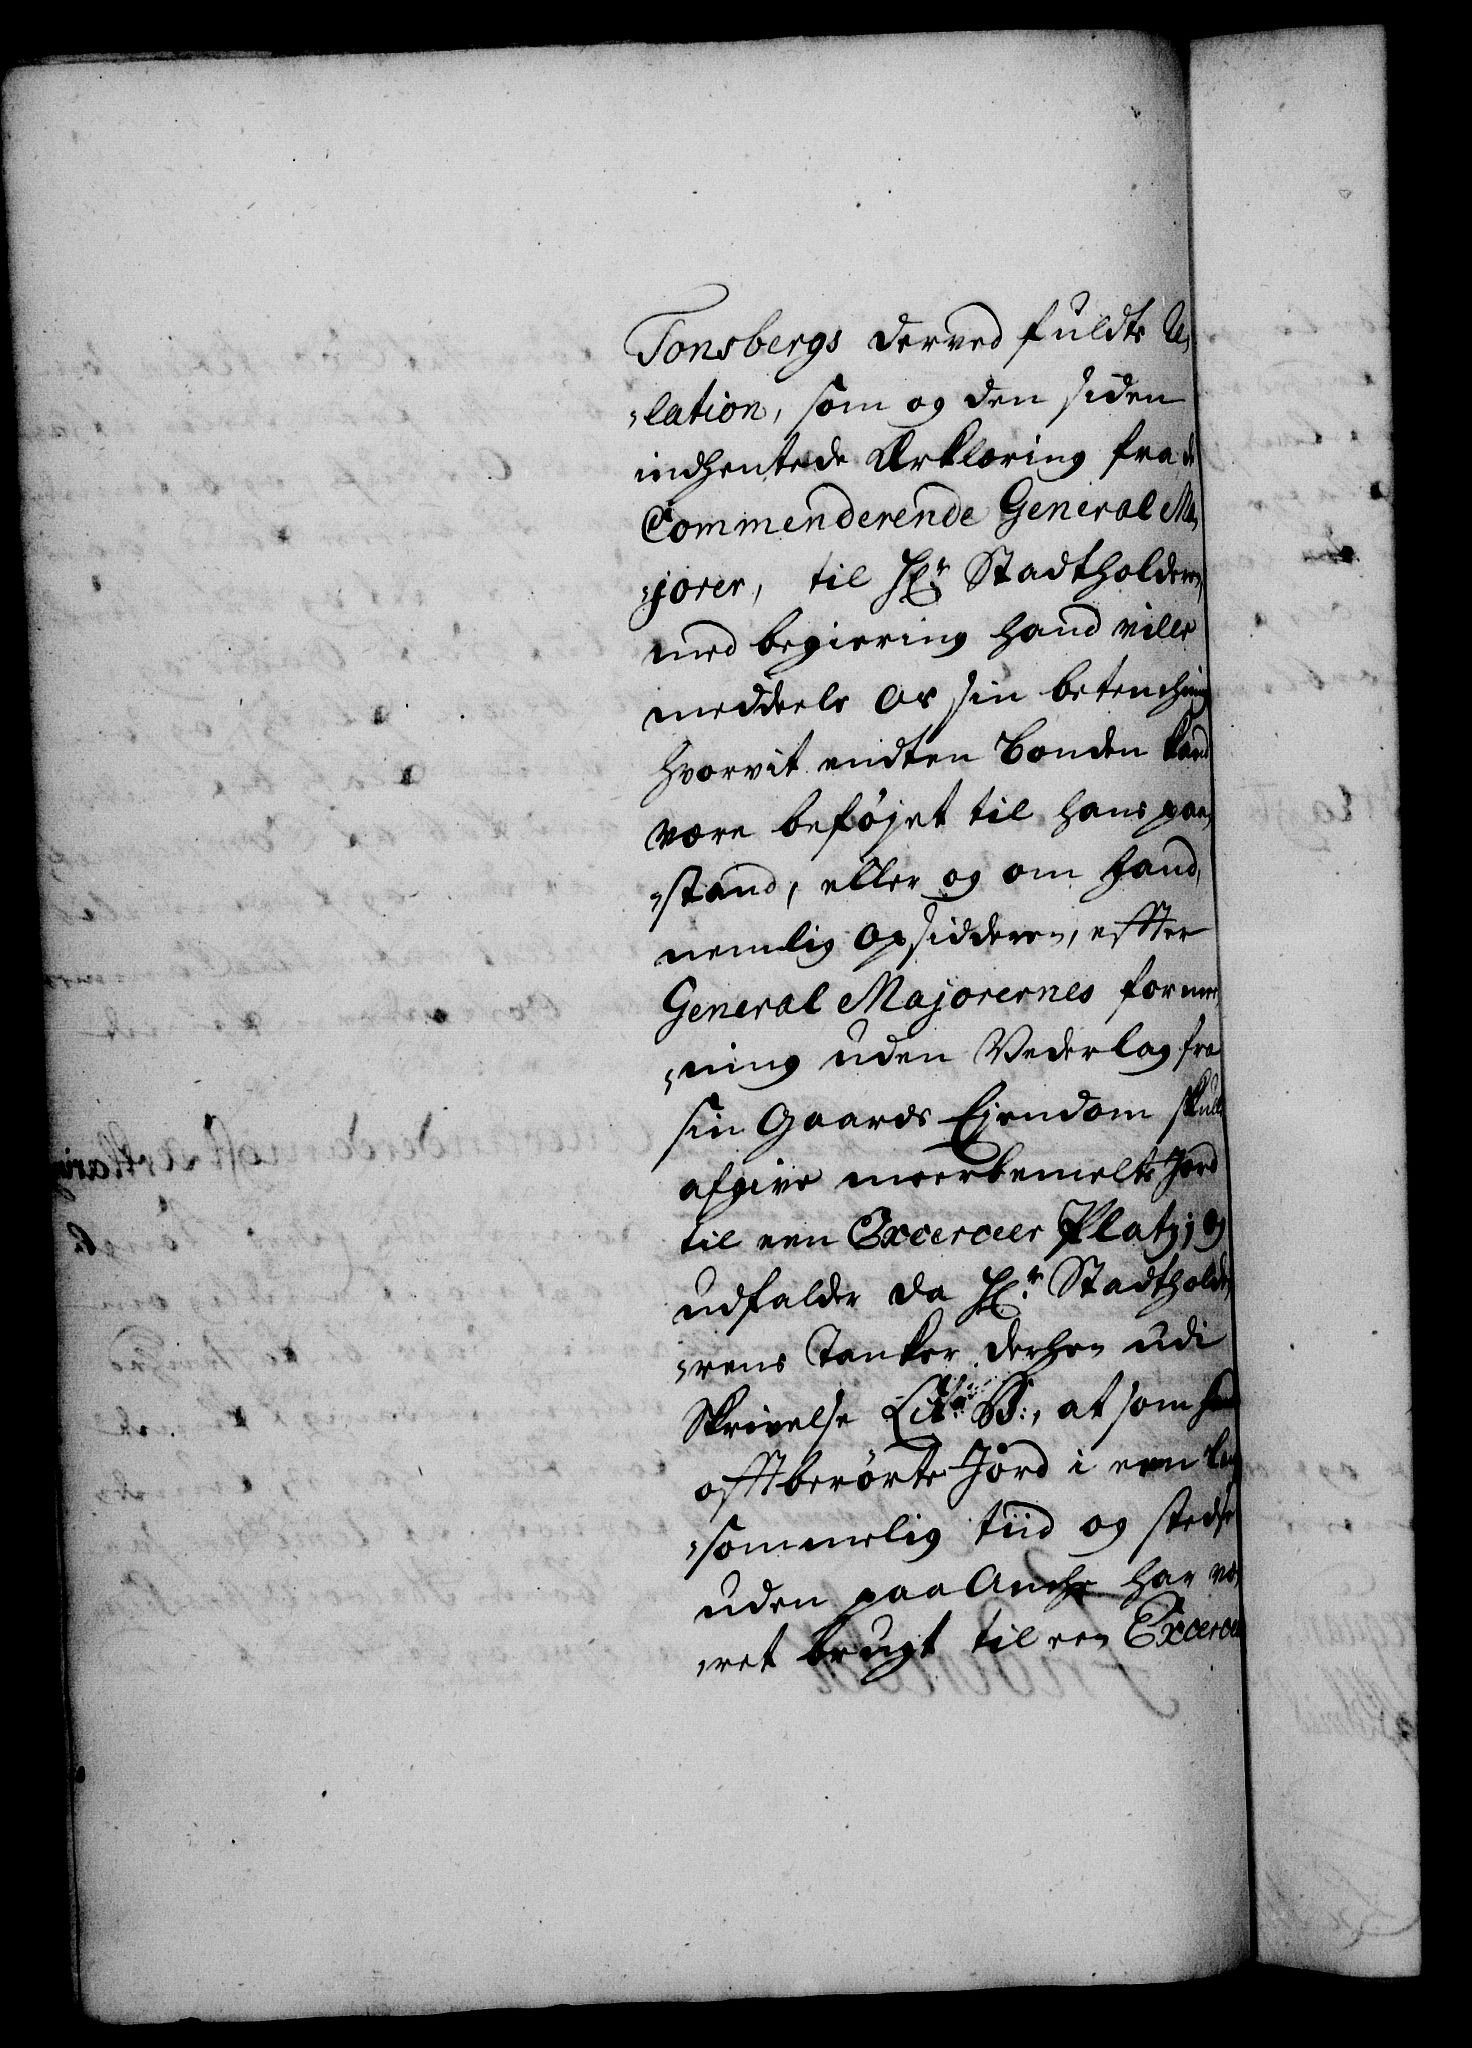 Tonsbergs derved fuldte Re„
„lation, som og den siden
indhentede Erklæring fra de
Commenderende General Ma„
„jorer, til Hr. Stadtholderen,
med begiering hand ville
meddeele os sin betenchning
hvorvit endten Bonden kand
være beföjet til hans paa„
„stand, eller og om hand,
nemlig Opsidderen, effter
General Majorernes formee„
„ning uden Vederlag fra
sin Gaards Ejendom skulle
afgive meerbemelte Jord
til een Excerceer Platz; Og
udfalder da Hr. Stadtholde„
„rens Tanker derhen udi
Skrivelse Litr. B:, at som hand
offtberörte Jord i een lang„
„sommelig tiid og stedse
uden paa Anche har væ„
„ret brugt til een Excerceer